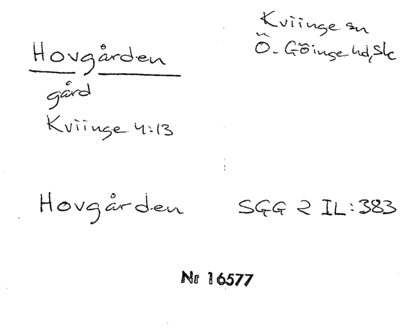 Kviinge sn
Ö. Göinge hd, Sk
Hovgården
gård
Kviinge 4:13
Hovgården SGG 2 IL:383
Nr 16577